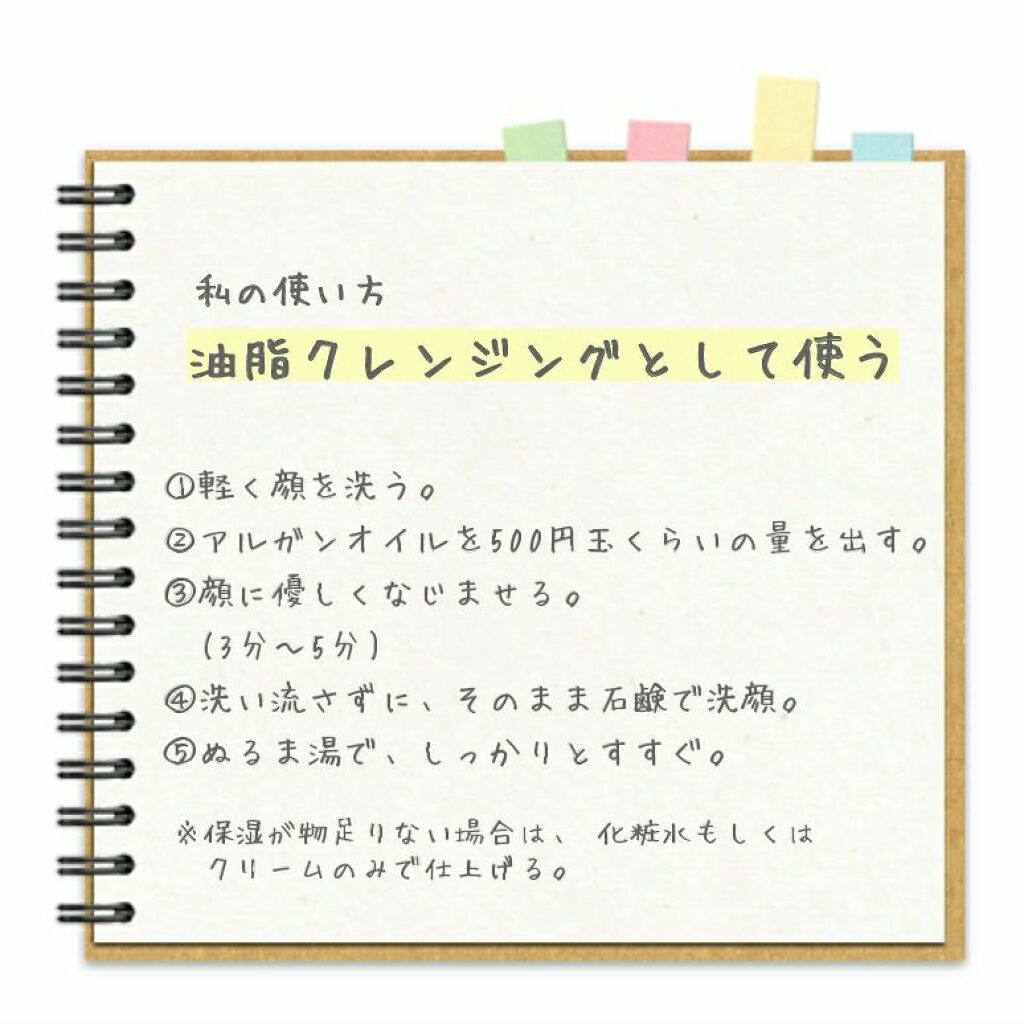 私の使い方
油脂クレンジングとして使う
①軽く顔を洗う。
②アルガンオイルを500円玉くらいの量を出す。
③顔に優しくなじませる。
(3分～5分)
④洗い流さずに、そのまま石鹸で洗顔。
⑤ぬるま湯で、しっかりとすすぐ。
※保湿が物足りない場合は、 化粧水もしくは
クリームのみで仕上げる。